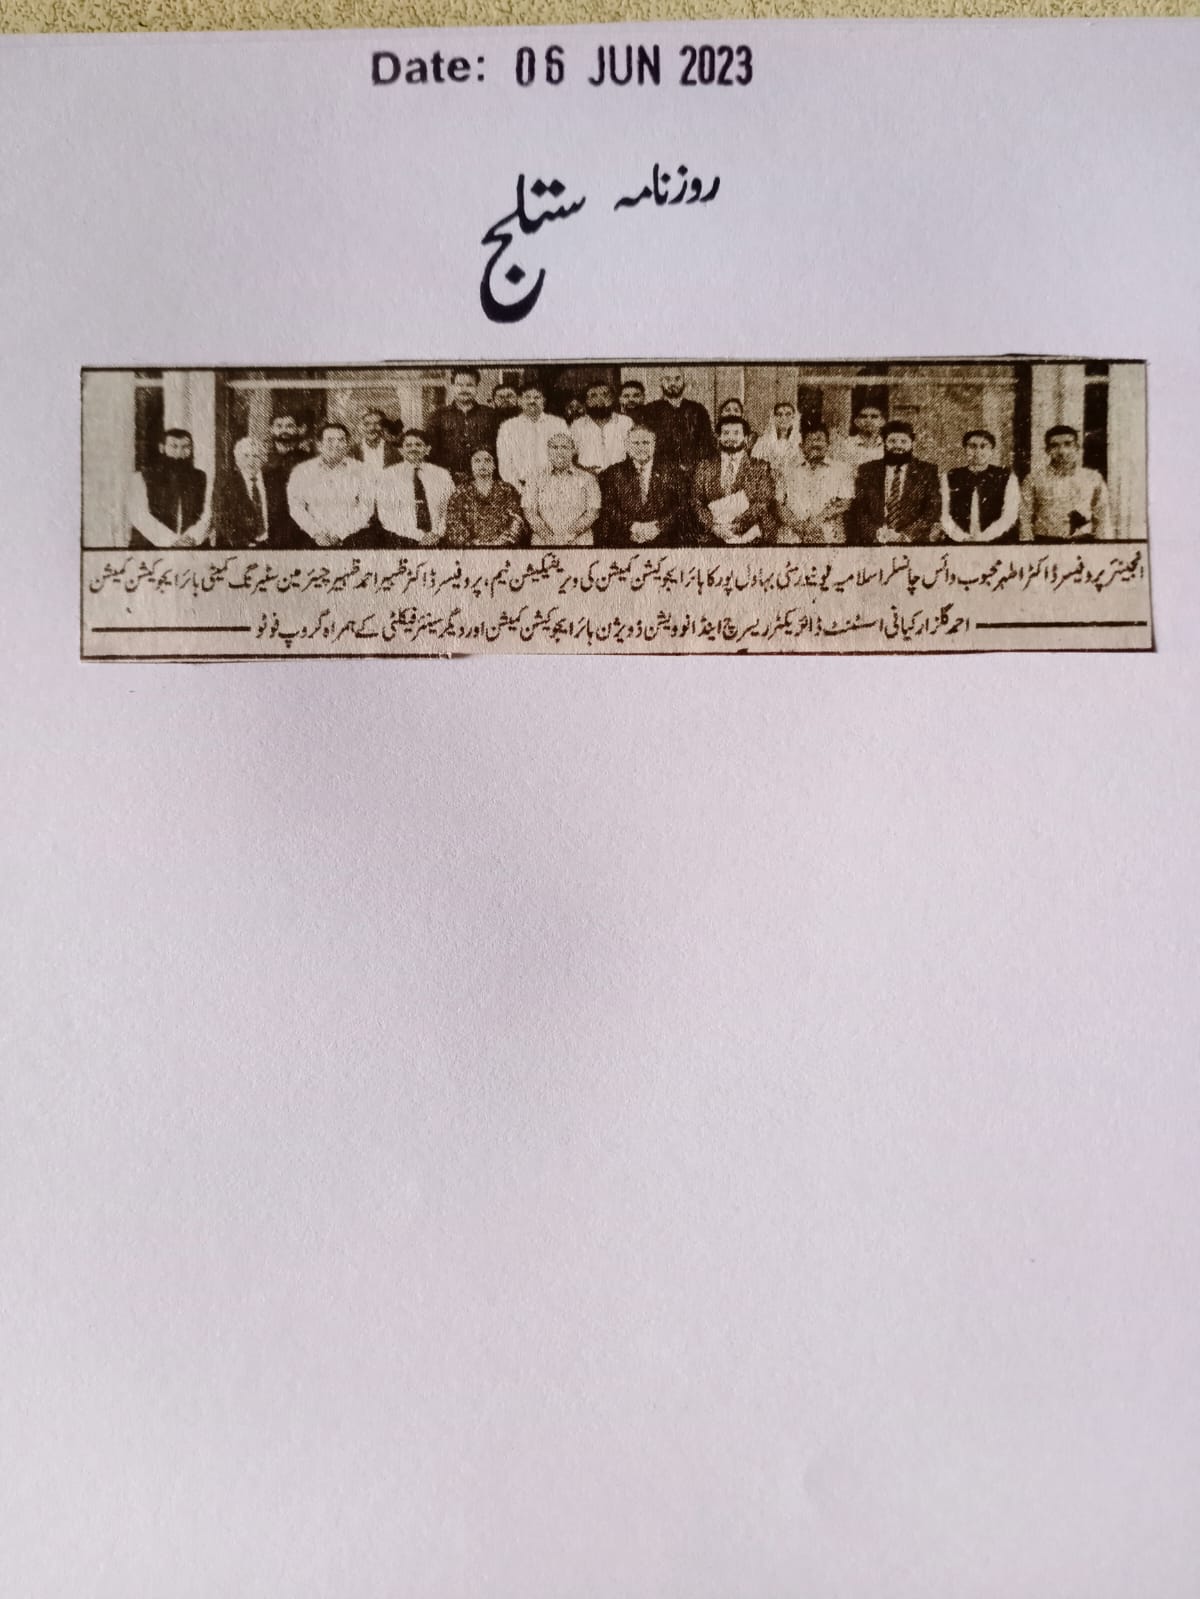 Date: 06 JUN 2023
روزنامہ ستلج
انجینئر پروفیسر ڈاکٹر اطہر محبوب وائس چانسلر اسلامیہ یونیورسٹی بہاول پور کا ہائر ایجوکیشن کمیشن کی ویریفیکیشن ٹیم، پروفیسر ڈاکٹر ظہیر احمد ظہیر چیئرمین سٹیرنگ کمیٹی ہائر ایجوکیشن کمیشن
احمد گلزار کیانی اسسٹنٹ ڈائریکٹر ریسرچ اینڈ انوویشن ڈویژن ہائر ایجوکیشن کمیشن اور دیگر سینئر فیکلٹی کے ہمراہ گروپ فوٹو